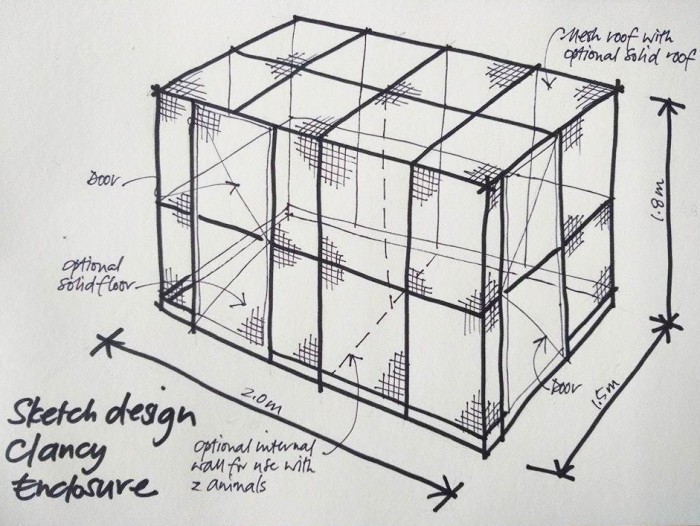 Mesh roof with
optional solid roof
Door
1.8m
optional
solid floor
Door
1.5m
2.0m
Sketch design
Clancy
Enclosure
Optional internal
wall for use with
2 animals